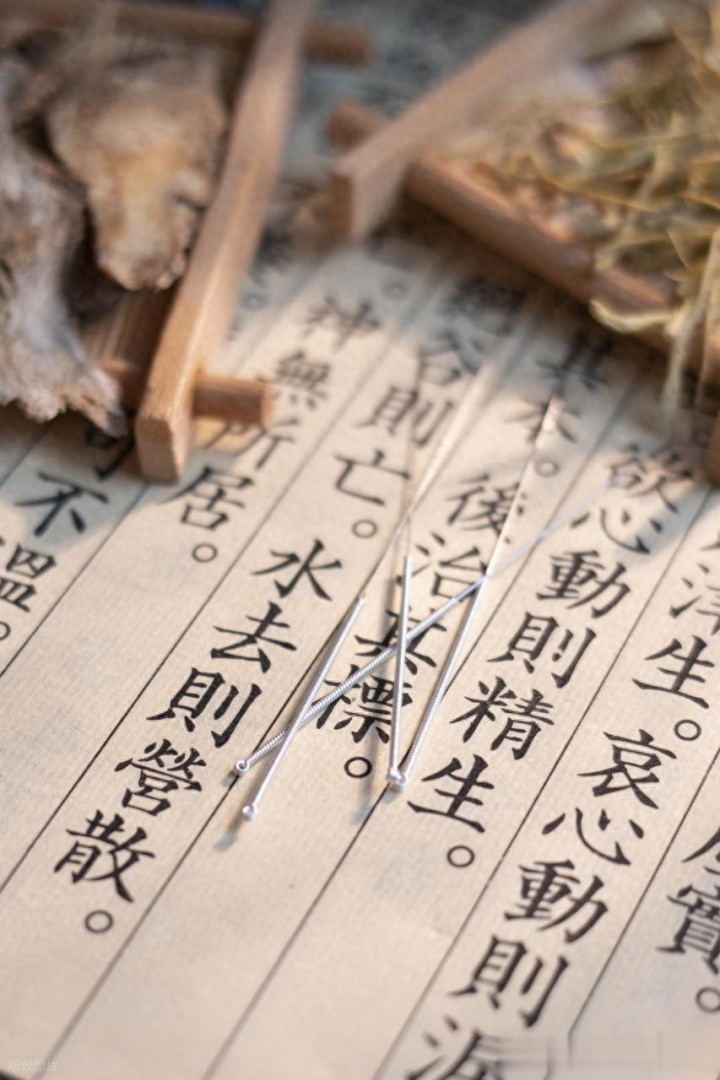 實。
津生。哀心動則淚
欲心動則精生。
其本。後治其標。
谷則亡。水去則營散。
神無所居。
不溫。